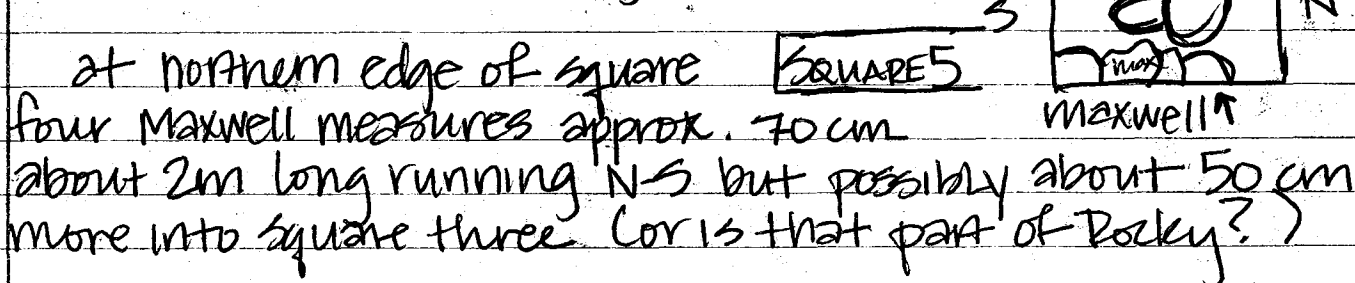 S N
at northern edge of square SQUARE 5 max
four Maxwell measures approx. 70 cm maxwell↑
about 2m long running N-S but possibly about 50 cm
more into square three (or is that part of Rocky?)